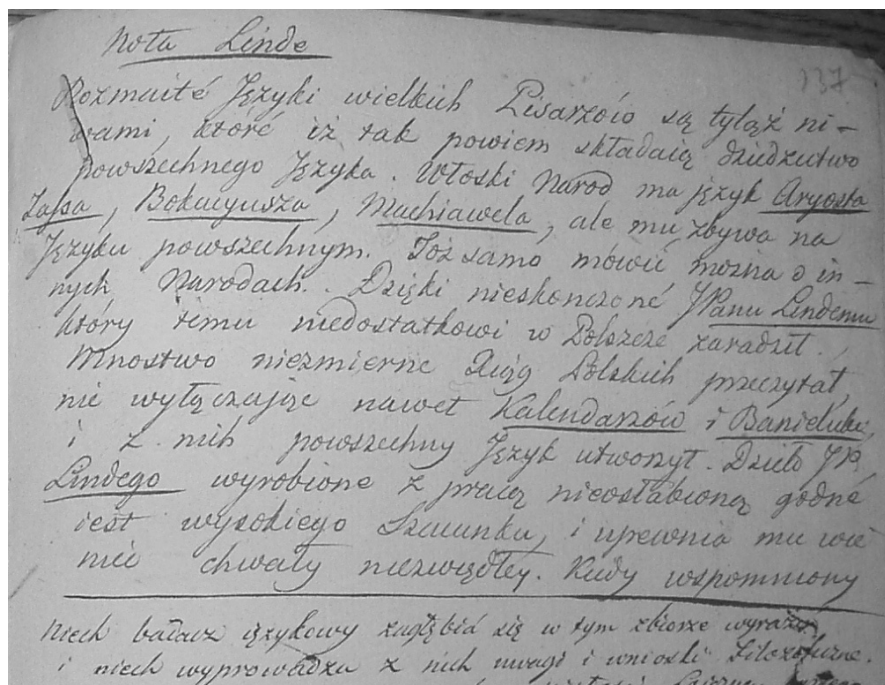 Nota Linde
137
Rozmaité Języki wielkich Pisarzów są tyląż ni-
wami, któré iż tak powiem składaią dziedzictwo
powszechnego Języka. Włoski Narod ma język Aryosta
Tassa, Bokacyusza, Machiawela, ale mu zbywa na
Języku powszechnym. Toż samo mówić można o in-
nych Narodach. Dzięki nieskonczoné JPanu Lindemu
który temu niedostatkowi w Polszcze zaradził.
Mnostwo niezmierne Xiąg Polskich przeczytał,
nie wyłączając nawet Kalendarzów i Banieluki,
i z nich powszechny Język utworzył. Dzieło JP.
Lindego wyrobione z pracą nieosłabioną godné
iest wysokiego Szacunku, i upewnia mu wie
niec chwały niezwiędłey. Kudy wspomniony
Niech badacz ięzykowy zagłębia się w tym zbiorze wyrazów
i niech wyprowadza z nich uwagi i wnioski filozoficzne.